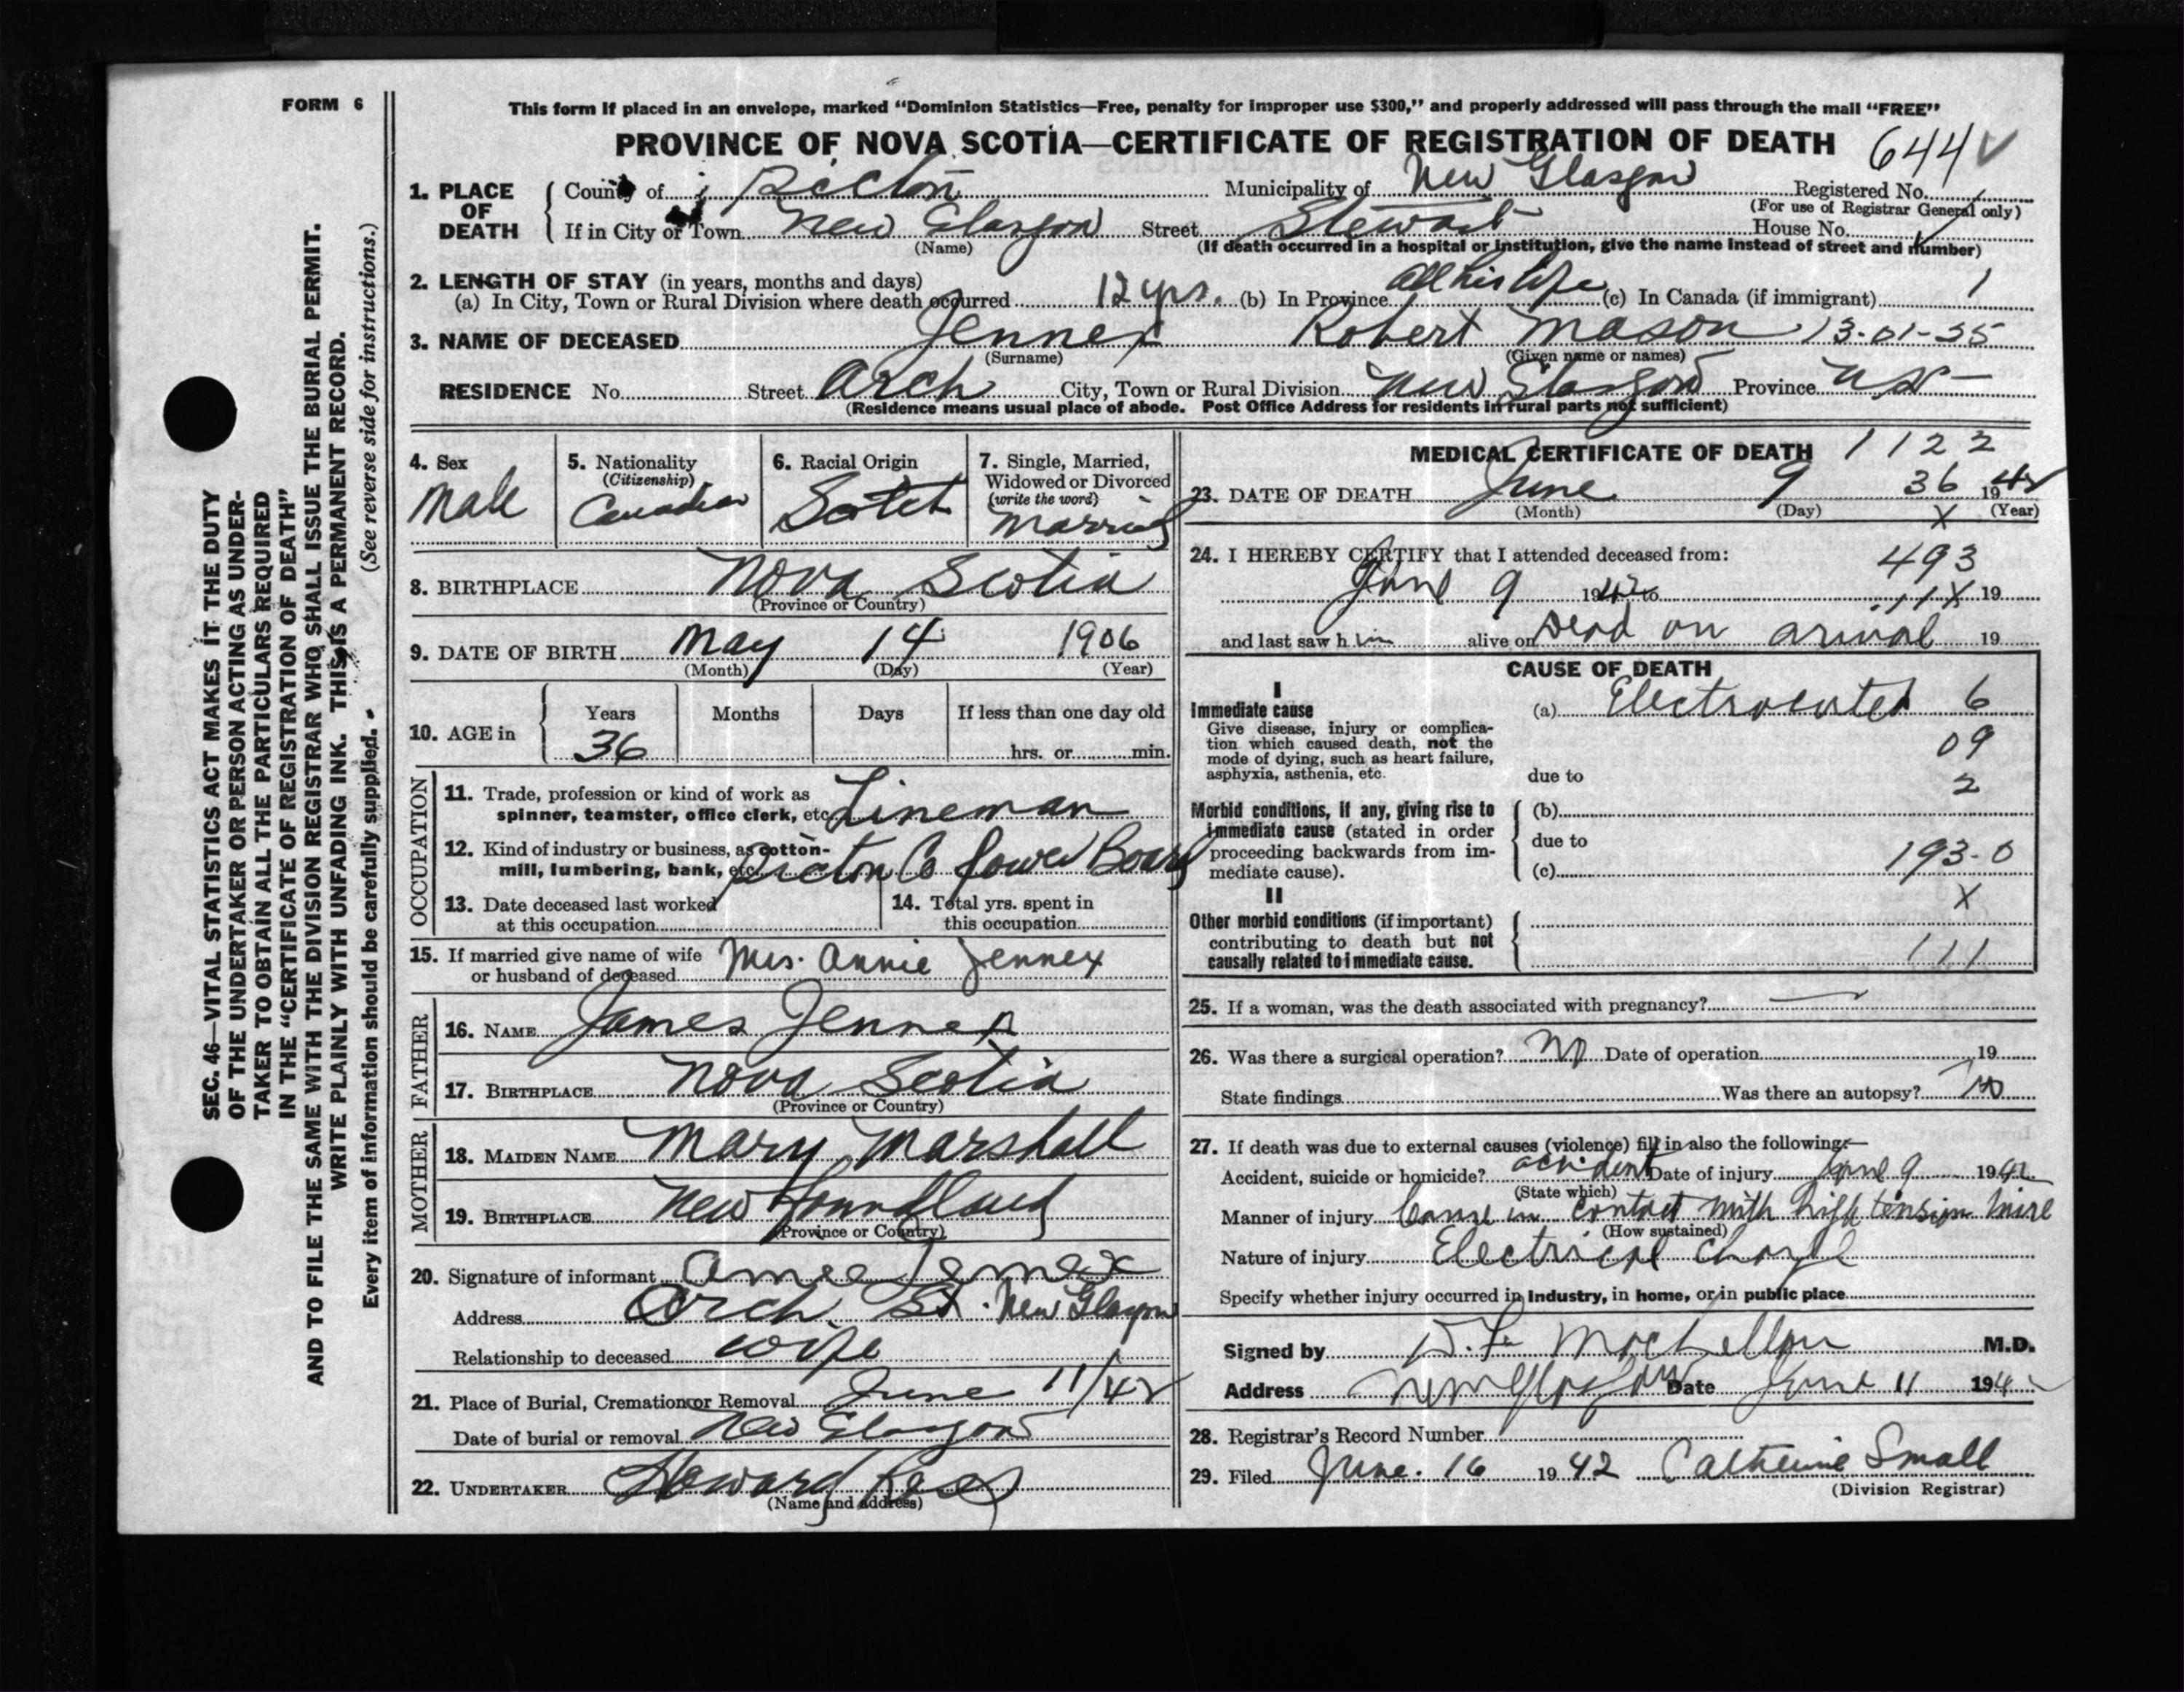 FORM 6
This form if placed in an envelope, marked “Dominion Statistics—Free, penalty for improper use $300,” and properly addressed will pass through the mail “FREE”
PROVINCE OF NOVA SCOTIA—CERTIFICATE OF REGISTRATION OF DEATH 644 ✓
1. PLACE OF DEATH
County of Pictou Municipality of New Glasgow Registered No.
(For use of Registrar General only)
If in City or Town New Glasgow Street Stewart House No.
(Name) (If death occurred in a hospital or institution, give the name instead of street and number)
2. LENGTH OF STAY (in years, months and days)
(a) In City, Town or Rural Division where death occurred 12 yrs. (b) In Province all his life (c) In Canada (if immigrant) 1
3. NAME OF DECEASED Jennex Robert Mason 13-01-35
(Surname) (Given name or names)
RESIDENCE No. Street Arch City, Town or Rural Division New Glasgow Province N.S.
(Residence means usual place of abode. Post Office Address for residents in rural parts not sufficient)
4. Sex
Male
5. Nationality
(Citizenship)
Canadian
6. Racial Origin
Scotch
7. Single, Married,
Widowed or Divorced
(write the word)
Married
8. BIRTHPLACE Nova Scotia
(Province or Country)
9. DATE OF BIRTH May 14 1906
(Month) (Day) (Year)
10. AGE in
Years Months Days If less than one day old
36 hrs. or min.
OCCUPATION
11. Trade, profession or kind of work as
spinner, teamster, office clerk, etc. Lineman
12. Kind of industry or business, as cotton-
mill, lumbering, bank, etc. Picton Co Power Board
13. Date deceased last worked
at this occupation
14. Total yrs. spent in
this occupation
15. If married give name of wife
or husband of deceased Mrs. Annie Jennex
FATHER
16. NAME James Jennex
17. BIRTHPLACE Nova Scotia
(Province or Country)
MOTHER
18. MAIDEN NAME Mary Marshall
19. BIRTHPLACE New Foundland
(Province or Country)
20. Signature of informant Jennex
Address Arch St. New Glasgow
Relationship to deceased wife
21. Place of Burial, Cremation or Removal June 11/42
Date of burial or removal New Glasgow
22. UNDERTAKER Howard
(Name and address)
MEDICAL CERTIFICATE OF DEATH 1122
23. DATE OF DEATH June 9 36 1942
(Month) (Day) X (Year)
24. I HEREBY CERTIFY that I attended deceased from: 493
June 9 1942 to 11X 19
and last saw him alive on Dead on arival 19
CAUSE OF DEATH
I
Immediate cause
Give disease, injury or complica-
tion which caused death, not the
mode of dying, such as heart failure,
asphyxia, asthenia, etc.
(a) Electrocuted 6
09
due to
2
Morbid conditions, if any, giving rise to
immediate cause (stated in order
proceeding backwards from im-
mediate cause).
(b)
due to
(c) 193-0
II
X
Other morbid conditions (if important)
contributing to death but not
causally related to immediate cause.
111
25. If a woman, was the death associated with pregnancy?
26. Was there a surgical operation? No Date of operation 19
State findings Was there an autopsy? No
27. If death was due to external causes (violence) fill in also the following:—
Accident, suicide or homicide? accident Date of injury June 9 1942
(State which)
Manner of injury Came in contact with high tension wire
(How sustained)
Nature of injury Electrical charge
Specify whether injury occurred in industry, in home, or in public place
Signed by D. F. MacLellan M.D.
Address New Glasgow Date June 11 194
28. Registrar's Record Number
29. Filed June. 16 1942 Catherine Small
(Division Registrar)
SEC. 46—VITAL STATISTICS ACT MAKES IT THE DUTY
OF THE UNDERTAKER OR PERSON ACTING AS UNDER-
TAKER TO OBTAIN ALL THE PARTICULARS REQUIRED
IN THE “CERTIFICATE OF REGISTRATION OF DEATH”
AND TO FILE THE SAME WITH THE DIVISION REGISTRAR WHO SHALL ISSUE THE BURIAL PERMIT.
WRITE PLAINLY WITH UNFADING INK. THIS IS A PERMANENT RECORD.
Every item of information should be carefully supplied. (See reverse side for instructions.)